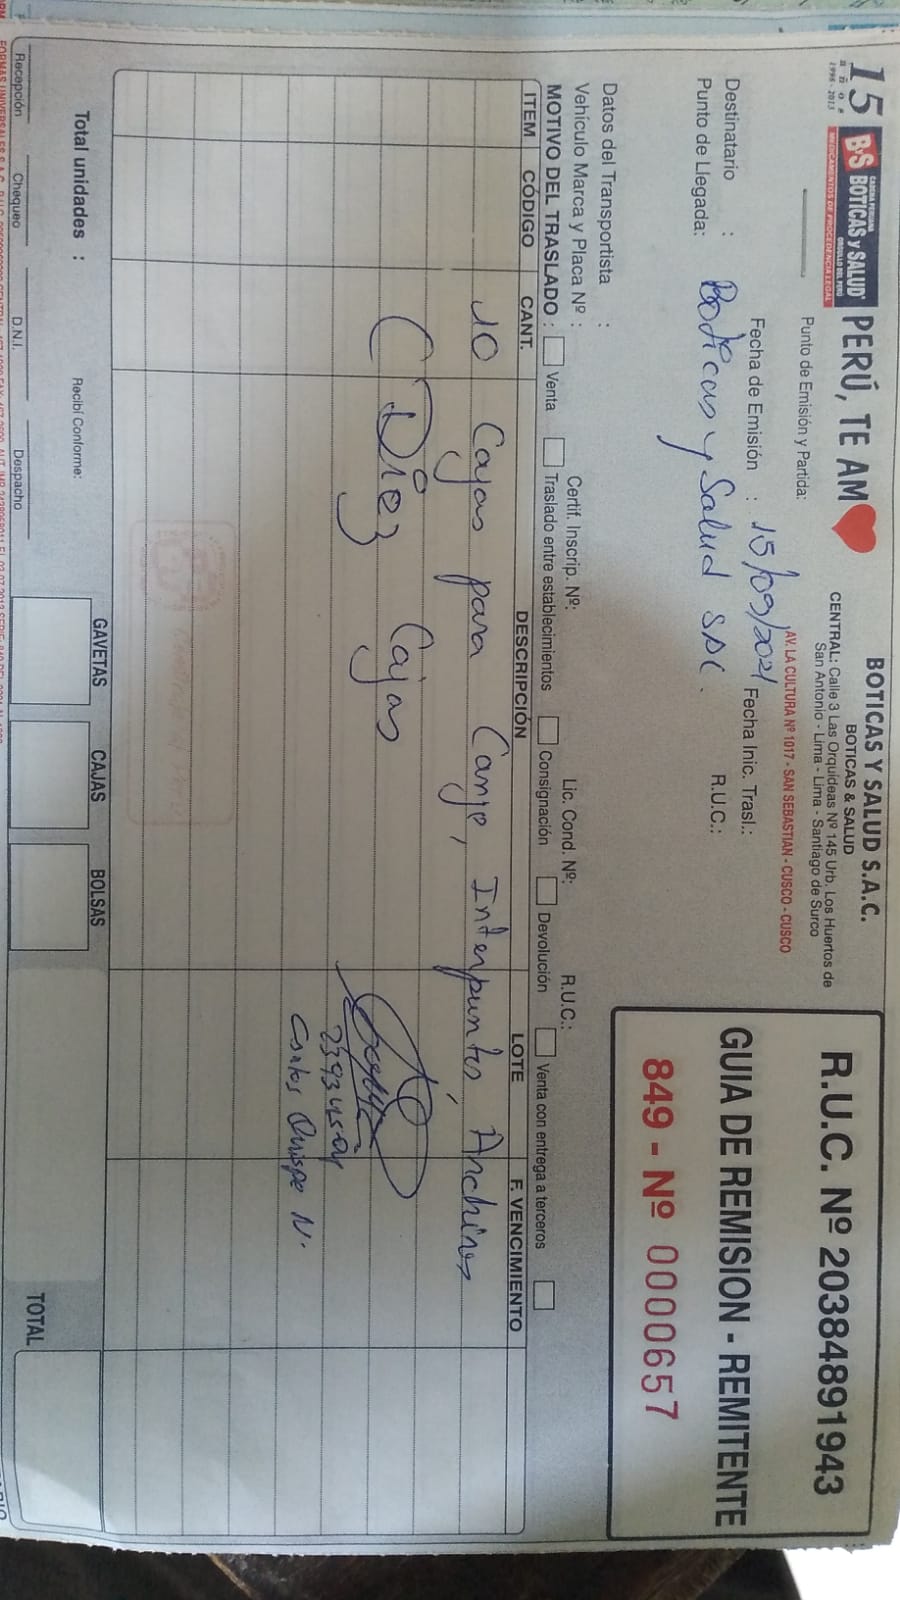 15 años 1998 - 2013
CADENA PERUANA
B&S BOTICAS y SALUD
ORGULLO DEL PERÚ
MEDICAMENTOS DE PROCEDENCIA LEGAL
PERÚ, TE AM
BOTICAS Y SALUD S.A.C.
BOTICAS & SALUD
CENTRAL: Calle 3 Las Orquideas Nº 145 Urb. Los Huertos de
San Antonio - Lima - Lima - Santiago de Surco
Punto de Emisión y Partida:
AV. LA CULTURA Nº 1017 - SAN SEBASTIAN - CUSCO - CUSCO
R.U.C. Nº 20384891943
GUIA DE REMISION - REMITENTE
849 - Nº 0000657
Fecha de Emisión : 15/09/2021 Fecha Inic. Trasl.:
Destinatario : Boticas y Salud SAC. R.U.C.:
Punto de Llegada:
Datos del Transportista : R.U.C.:
Vehículo Marca y Placa Nº : Certif. Inscrip. Nº: Lic. Cond. Nº:
MOTIVO DEL TRASLADO : Venta Traslado entre establecimientos Consignación Devolución Venta con entrega a terceros
ITEM CÓDIGO CANT. DESCRIPCIÓN LOTE F. VENCIMIENTO
10 Cajas para Canje, Interpuntos,
(Diez Cajas
Quispe N.
Total unidades :
Recibí Conforme:
GAVETAS CAJAS BOLSAS
TOTAL
Recepción Chequeo D.N.I. Despacho